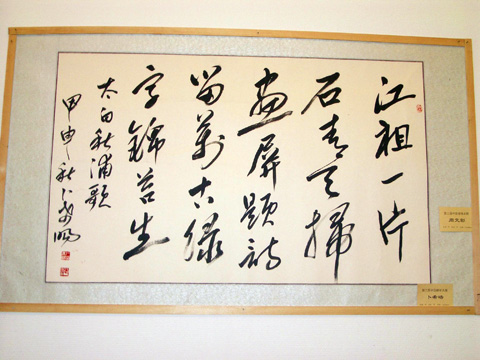 江祖一片
石青天掃
畫屏題詩
留萬古綠
字錦苔生
太白秋浦歌
甲申秋卜希暘